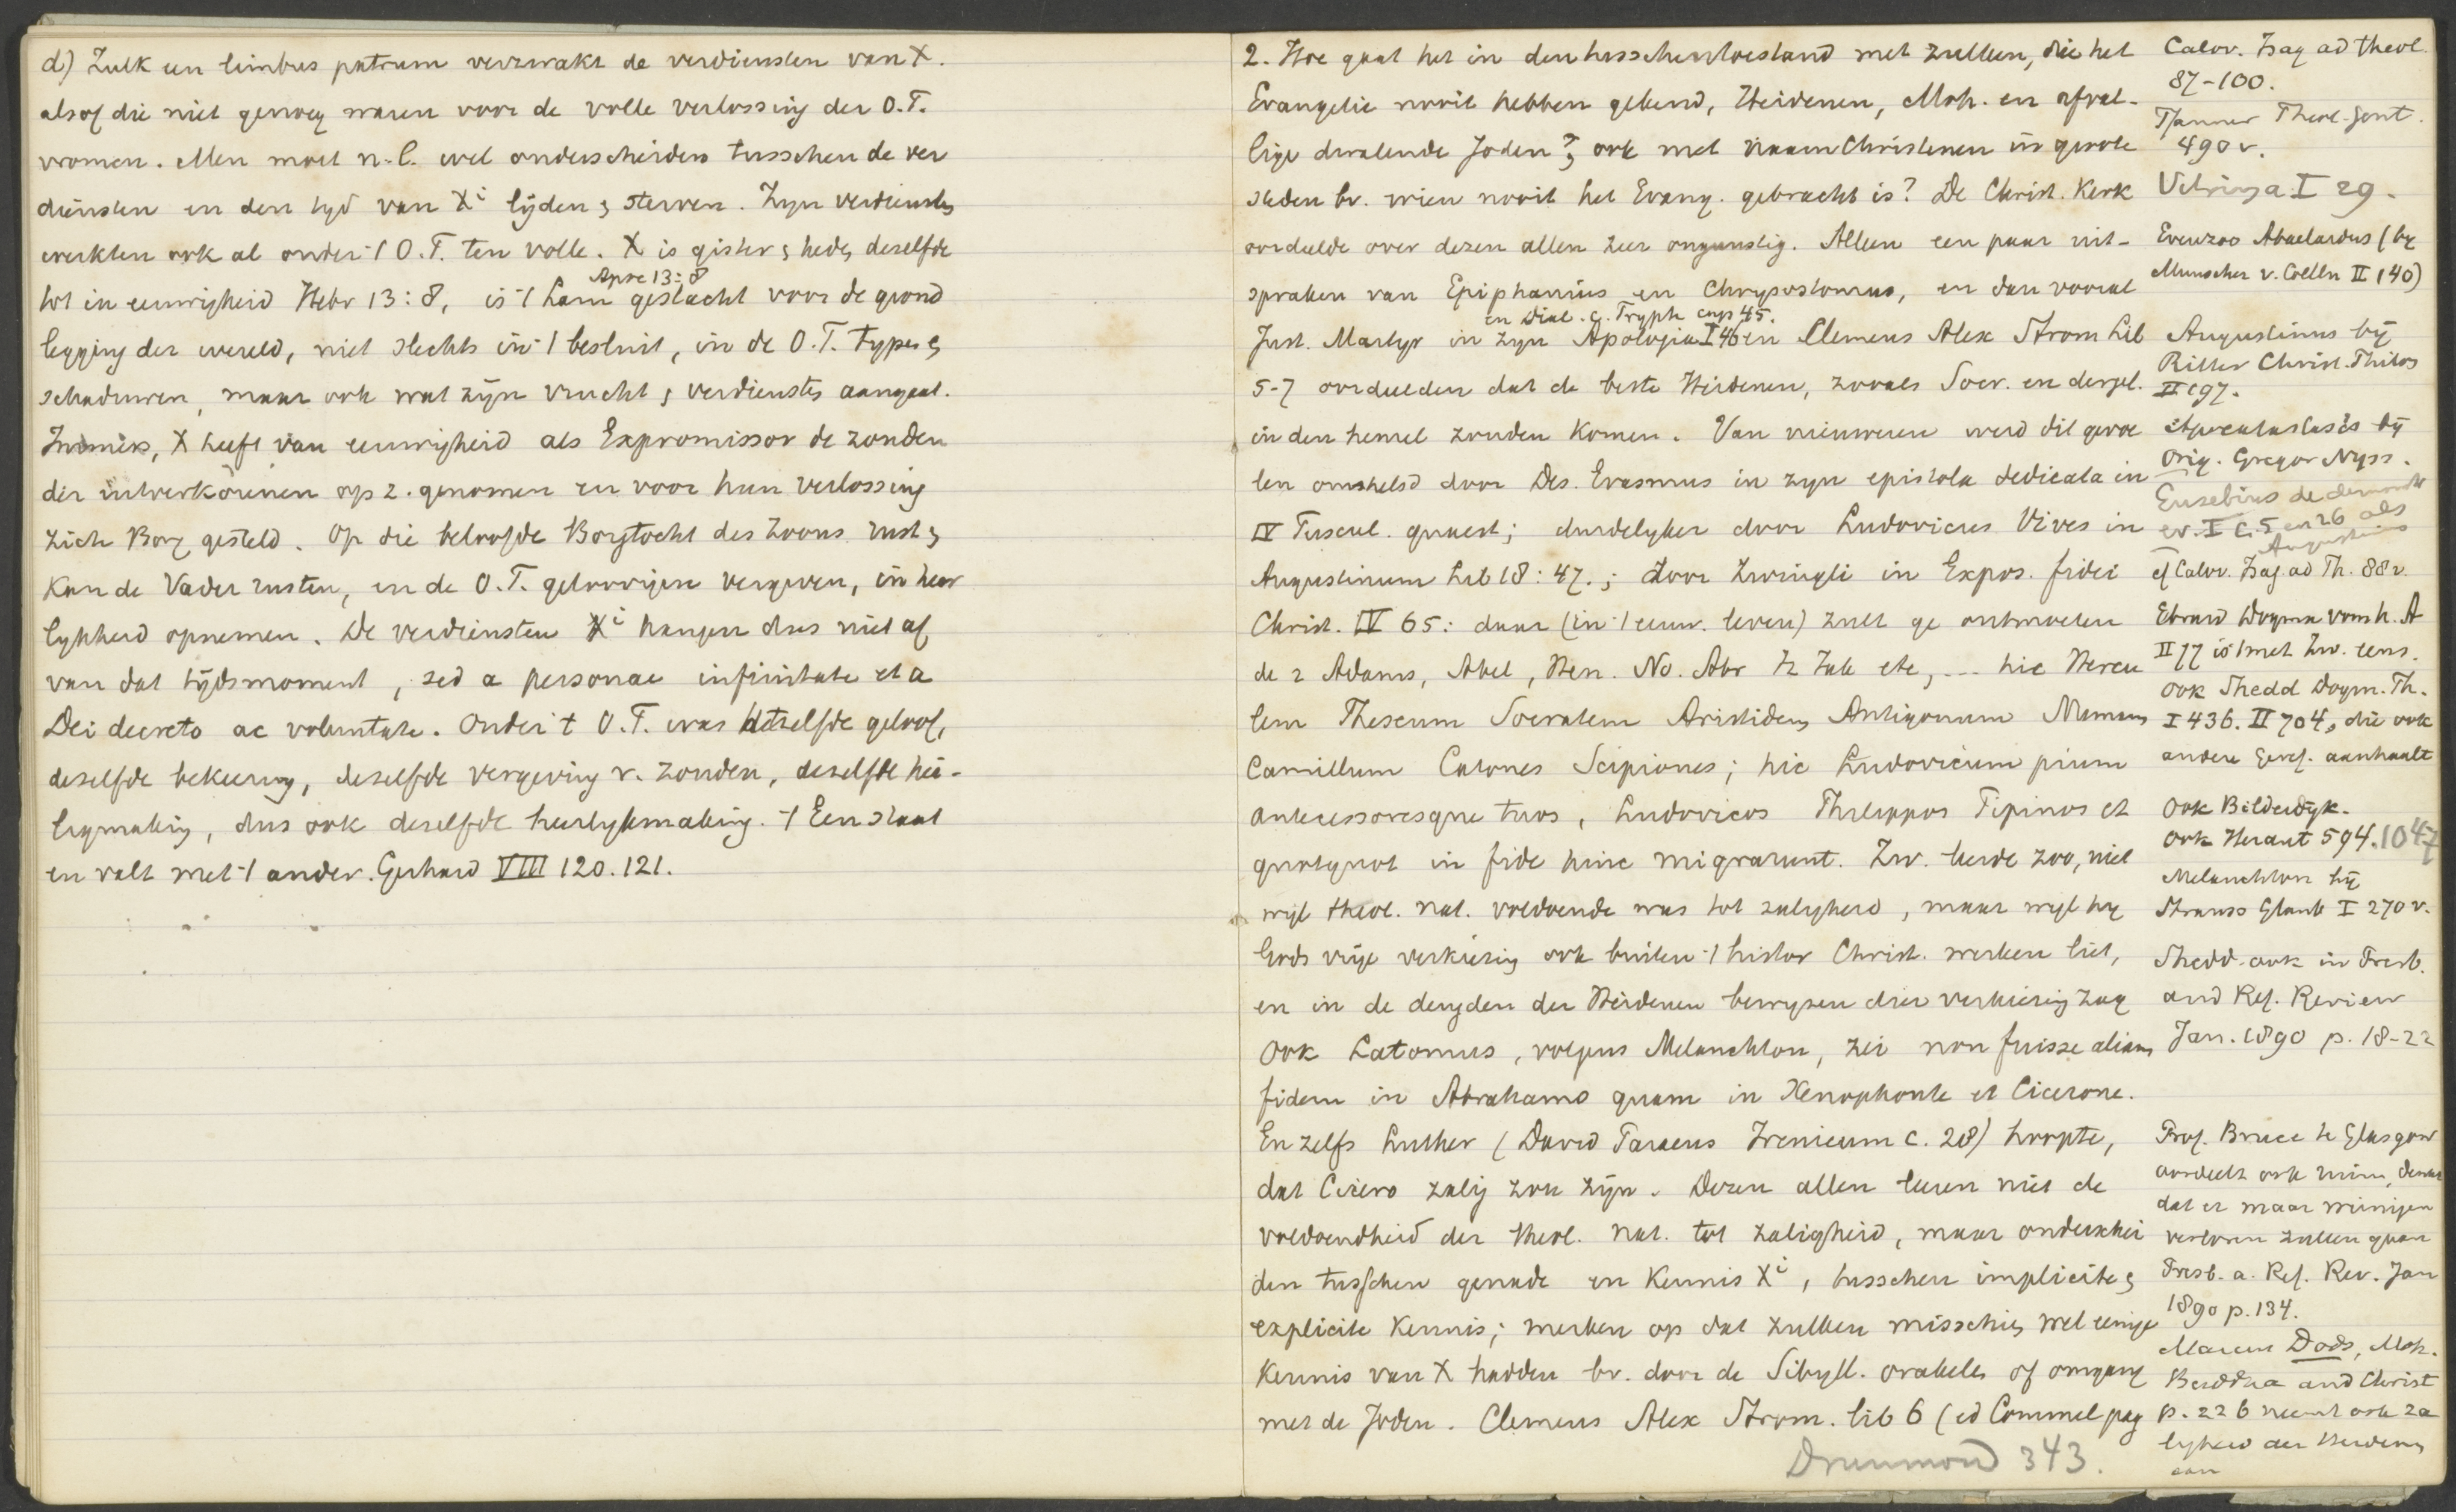 d) Zulk een limbus patrum verzwakt de verdiensten van X.
alsof die niet genoeg waren voor de volle verlossing der O.T.
vromen. Men moet n.l. wel onderscheiden tusschen de ver
diensten en den tyd van Xi lijden & sterven. Zyn verdiensten
werkten ook al onder 't O.T. ten volle. X is gister & heden deselfde
Apoc 13:8
tot in eeuwigheid Hebr 13:8, is 't Lam geslacht voor de grond
legging der wereld, niet slechts in 't besluit, in de O.T. typen &
schaduwen, maar ook wat zijn vrucht & verdiensten aangaat.
Immers, X heeft van eeuwigheid als Expromissor de zonden
der uitverkorenen op z. genomen en voor hun verlossing
zich Borg gesteld. Op die beloofde Borgtocht des Zoons rust &
kan de Vader rusten, en de O.T. geloovigen vergeven, in heer
lykheid opnemen. De verdiensten Xi hangen dus niet af
van dat tijdsmoment, sed a personae infinitate et a
Dei decreto ac voluntate. Onder 't O.T. was hetzelfde geloof,
deselfde bekeering, deselfde vergeving v. zonden, deselfde hei-
ligmaking, dus ook deselfde heerlykmaking. 't Een staat
en valt met 't ander. Gerhard VIII 120.121.
2. Hoe gaat het in den tusschentoestand met zulken, die het
Evangelie nooit hebben gekend, Heidenen, Moh. en afval-
lige dwalende Joden?, ook met naam Christenen in groote
steden bv. wien nooit het Evang. gebracht is? De Christ. Kerk
oordeelde over dezen allen zeer ongunstig. Alleen een paar uit-
spraken van Epiphanius en Chrysostomus, en dan vooral
en Dial. c. Tryph cap 45.
Just. Martyr in zyn Apologia I 46 en Clemens Alex Strom Lib
5-7 oordeelden dat de beste Heidenen, zooals Socr. en dergel.
in den hemel zouden komen. Van nieuweren werd dit gevoe
len omhelsd door Des. Erasmus in zyn epistola dedicata in
IV Tuscul. quaest; duidelyker door Ludovicus Vives in
Augustinum Lib 18:47.; door Zwingli in Expos. fidei
Christ. IV 65: daar (in 't eeuw. leven) zult ge ontmoeten
de 2 Adams, Abel, Hen. No. Abr Iz Jak etc, ... hic Hercu
lem Theseum Socratem Aristiden Antigonum Numam
Camillum Catones Scipiones; hic Ludovicum pium
antecessoresque tuos, Ludovicos Philippos Pipinos et
quotquot in fide hinc migrarunt. Zw. leerde zoo, niet
wijl theol. nat. voldoende was tot zaligheid, maar wijl hy
Gods vrije verkiezing ook buiten 't histor Christ. werken liet,
en in de deugden der Heidenen bewyzen dier verkiezing zag
Ook Latomus, volgens Melanchton, zei non fuisse aliam
fidem in Abrahamo quam in Xenophonte et Cicerone.
En zelfs Luther (David Paraeus Irenicum c. 28) hoopte,
dat Cicero zalig zou zijn. Dezen allen leeren niet de
voldoendheid der theol. nat. tot zaligheid, maar onderschei
den tusschen genade en kennis Xi, tusschen implicite &
explicite kennis; merken op dat zulken misschien wel eenige
kennis van X hadden bv. door de Sibyll. orakels of omgang
met de Joden. Clemens Alex Strom. lib 6 (ed Commel pag
Drummond 343.
Calov. Isag ad theol.
87-100.
Pfanner Theol. Gent.
490 v.
Vitringa I 29.
Evenzoo Abaelardus (by
Munscher v. Coelln II 140)
Augustinus bij
Ritter Christ. Philos
II 197.
Apocatastasis bij
Orig. Gregor Nyss.
Eusebius de demonstr
ev. I c. 5 en 26 als
Augustinus
cf Calov. Isag ad Th. 88 v.
Ebrard Dogma vom h. A
II 77 is 't met Zw. eens.
Ook Shedd Dogm. Th.
I 436. II 704, die ook
andere Geref. aanhaalt
Ook Bilderdyk.
Ook Heraut 594. 1047
Melanchton bij
Strauss Glaub I 270 v.
Shedd ook in Presb.
and Ref. Review
Jan. 1890 p. 18-22
Prof. Bruce te Glasgow
oordeelt ook ruim, denkt
dat er maar weinigen
verloren zullen gaan
Presb. a. Ref. Rev. Jan
1890 p. 134.
Marcus Dods, Moh.
Buddha and Christ
p. 226 neemt ook za
ligheid der Heidenen
aan